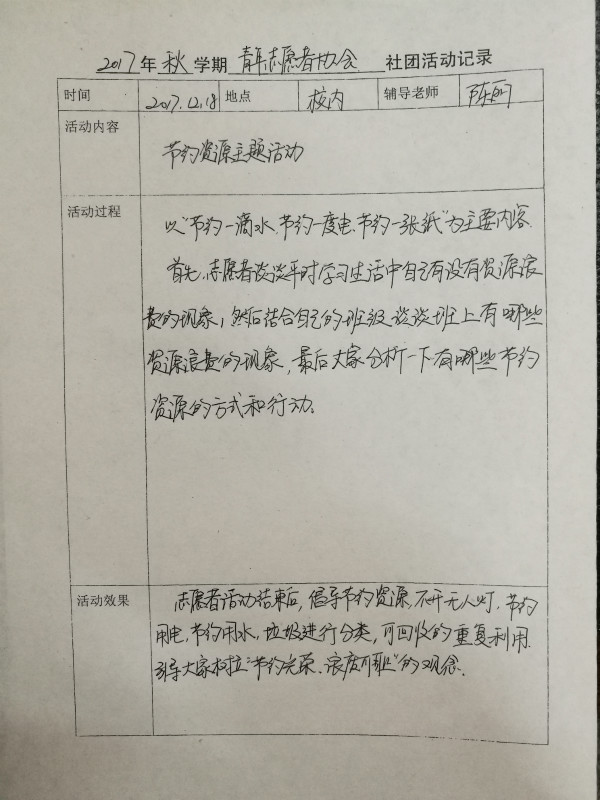 2017年秋学期青年志愿者协会社团活动记录
时间 2017.12.18 地点 校内 辅导老师 陈丽
活动内容
节约资源主题活动
活动过程
以"节约一滴水、节约一度电、节约一张纸"为主要内容.
首先,志愿者谈谈平时学习生活中自己有没有资源浪
费的现象,然后结合自己的班级谈谈班上有哪些
资源浪费的现象,最后大家分析一下有哪些节约
资源的方式和行动。
活动效果
志愿者活动结束后,倡导节约资源,不开无人灯,节约
用电,节约用水,垃圾进行分类,可回收的重复利用.
引导大家树立"节约光荣、浪费可耻"的观念.